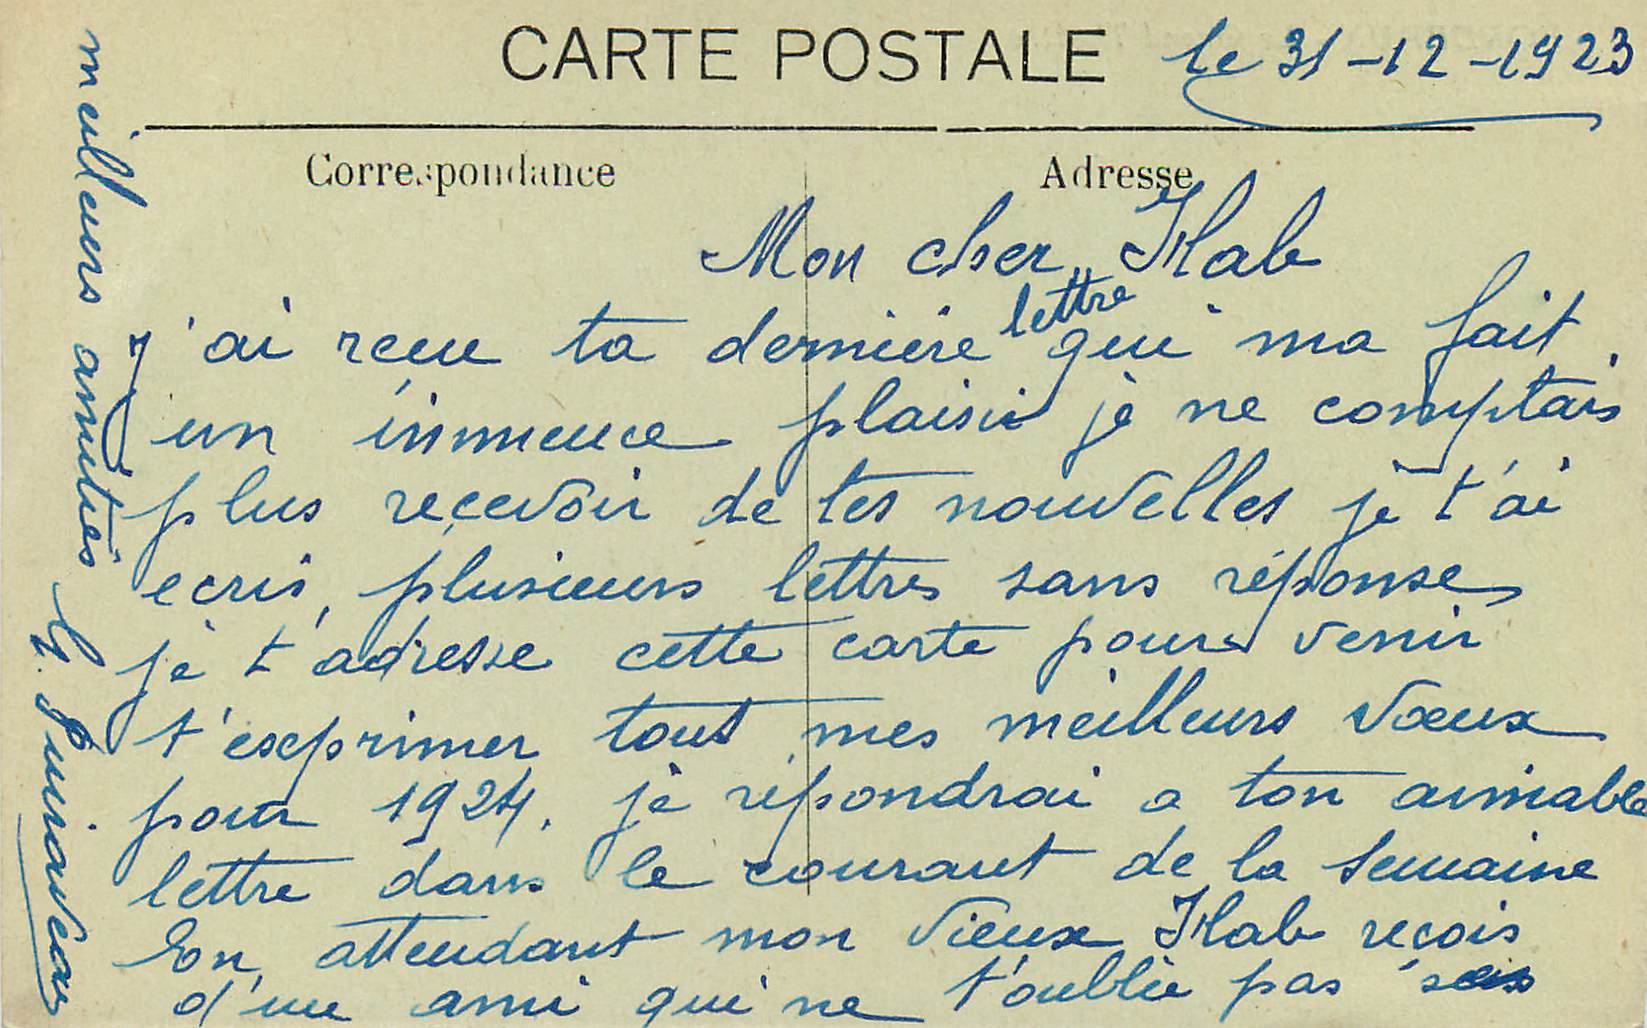 CARTE POSTALE le 31-12-1923
Correspondance Adresse
Mon cher Hab
J'ai reçu ta derniere lettre qui ma fait
un immence plaisir je ne comptais
plus recevoir de tes nouvelles je t'ai
ecris, plusieurs lettres sans réponse,
je t'adresse cette carte pour venir
t'exprimer tout mes meilleurs vœux
pour 1924. je répondrai a ton aimable
lettre dans le courant de la semaine
En attendant mon vieux Hab reçois
d'un ami qui ne t'oublie pas ses
meilleurs amitiés